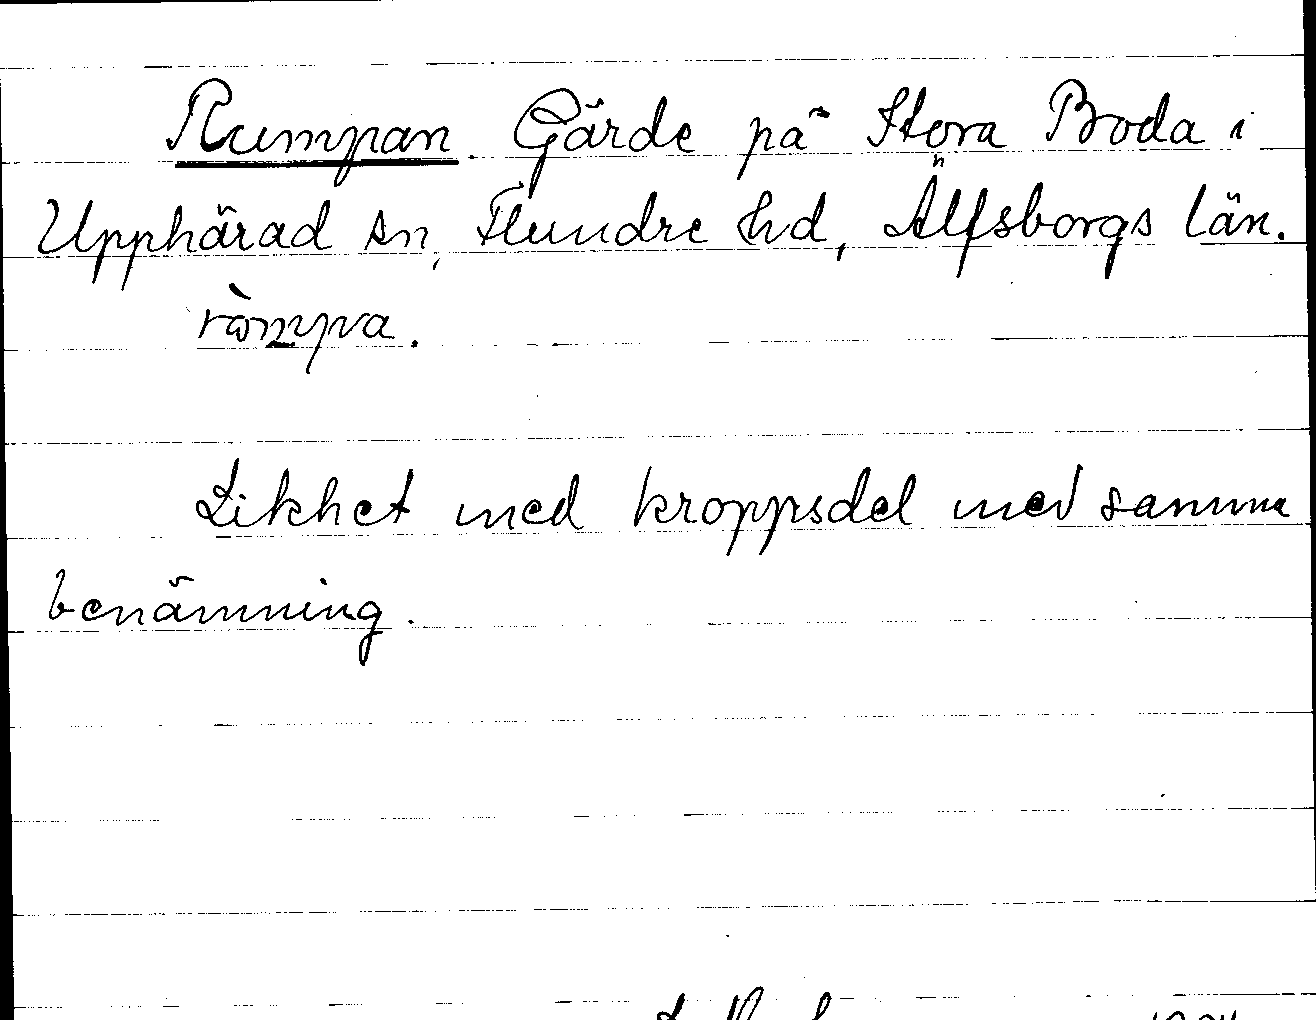 Rumpan. Gärde på Stora Boda i
Upphärad sn, Flundre hd, Älfsborgs län.
ròmpa.
Likhet med kroppsdel med samma
benämning.